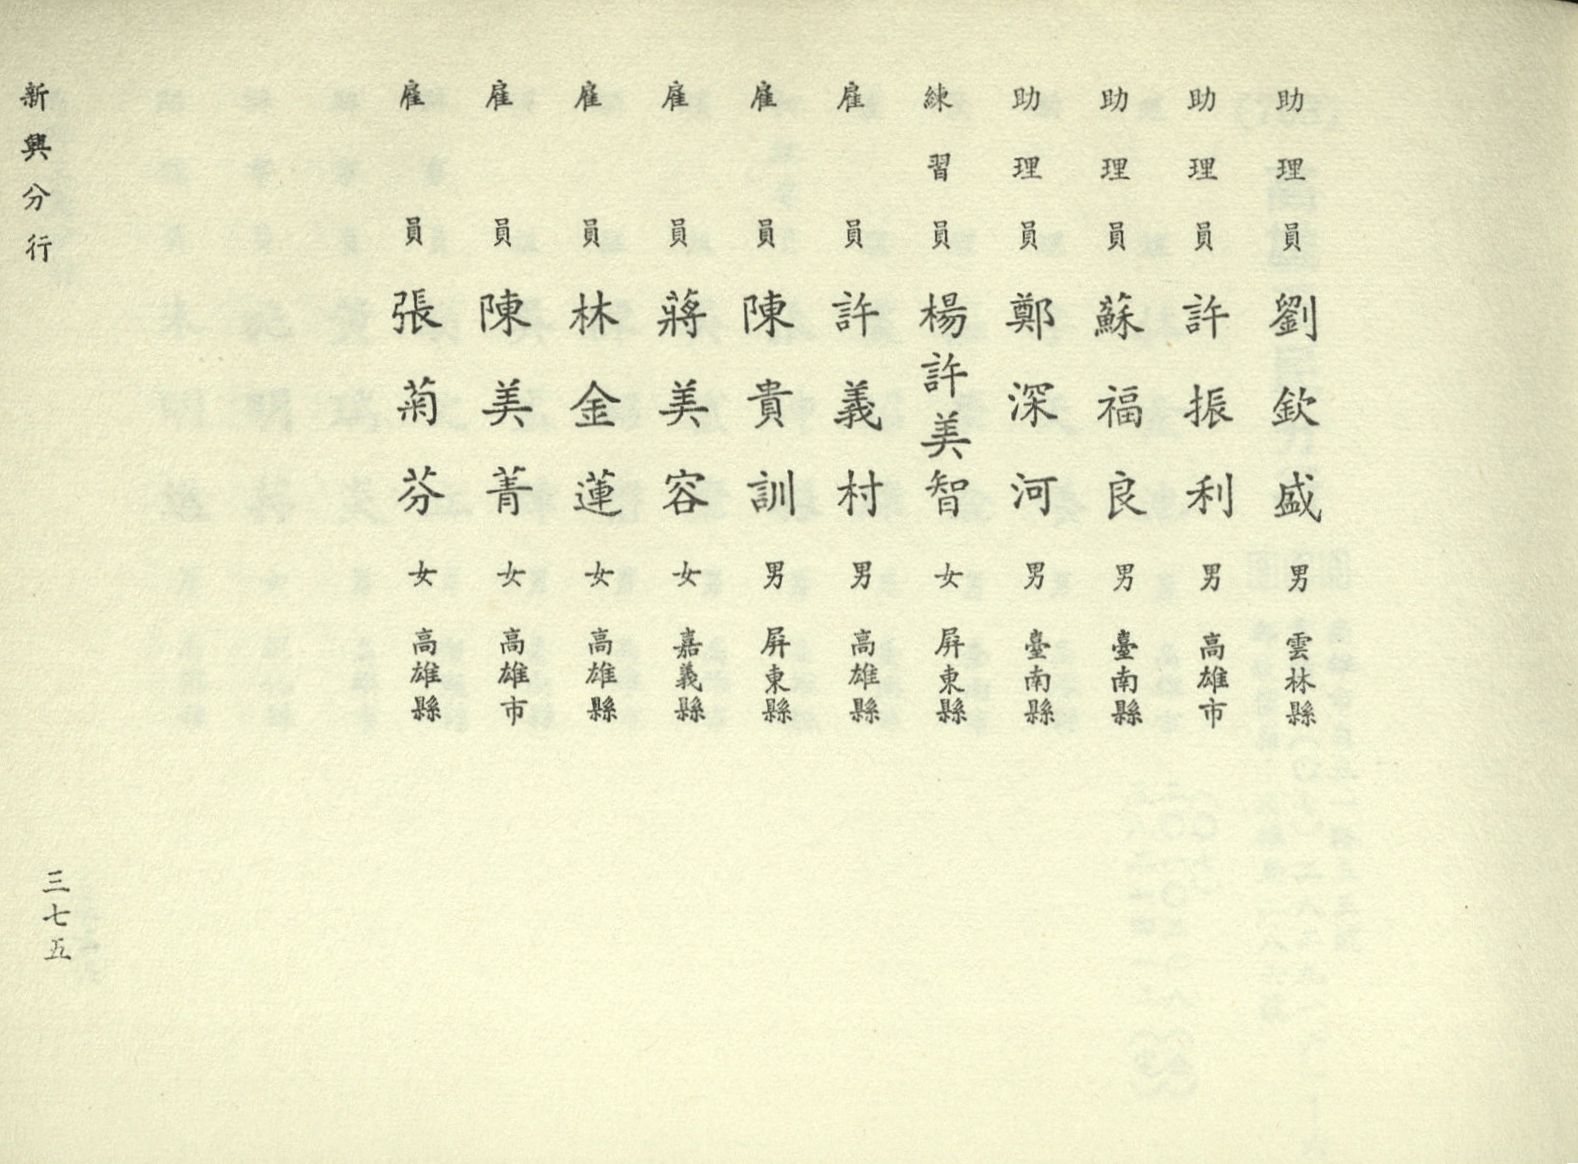 助理員 劉欽盛 男 雲林縣
助理員 許振利 男 高雄市
助理員 蘇福良 男 臺南縣
助理員 鄭深河 男 臺南縣
練習員 楊許美智 女 屏東縣
雇員 許義村 男 高雄縣
雇員 陳貴訓 男 屏東縣
雇員 蔣美容 女 嘉義縣
雇員 林金蓮 女 高雄縣
雇員 陳美菁 女 高雄市
雇員 張菊芬 女 高雄縣
新興分行
三七五